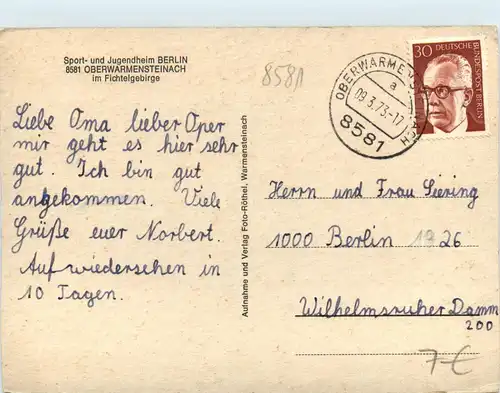 Sport- und Jugendheim BERLIN
8581 OBERWARMENSTEINACH
im Fichtelgebirge
Liebe Oma lieber Oper
mir geht es hier sehr
gut. Ich bin gut
angekommen. Viele
Grüße euer Norbert.
Aufwiedersehen in
10 Tagen.
Aufnahme und Verlag Foto-Röthel, Warmensteinach
8581
30 DEUTSCHE
BUNDESPOST BERLIN
a
09.3.73-17
8581
Herrn und Frau Siering
1000 Berlin 1926
Wilhelmsruher Damm
200
7€